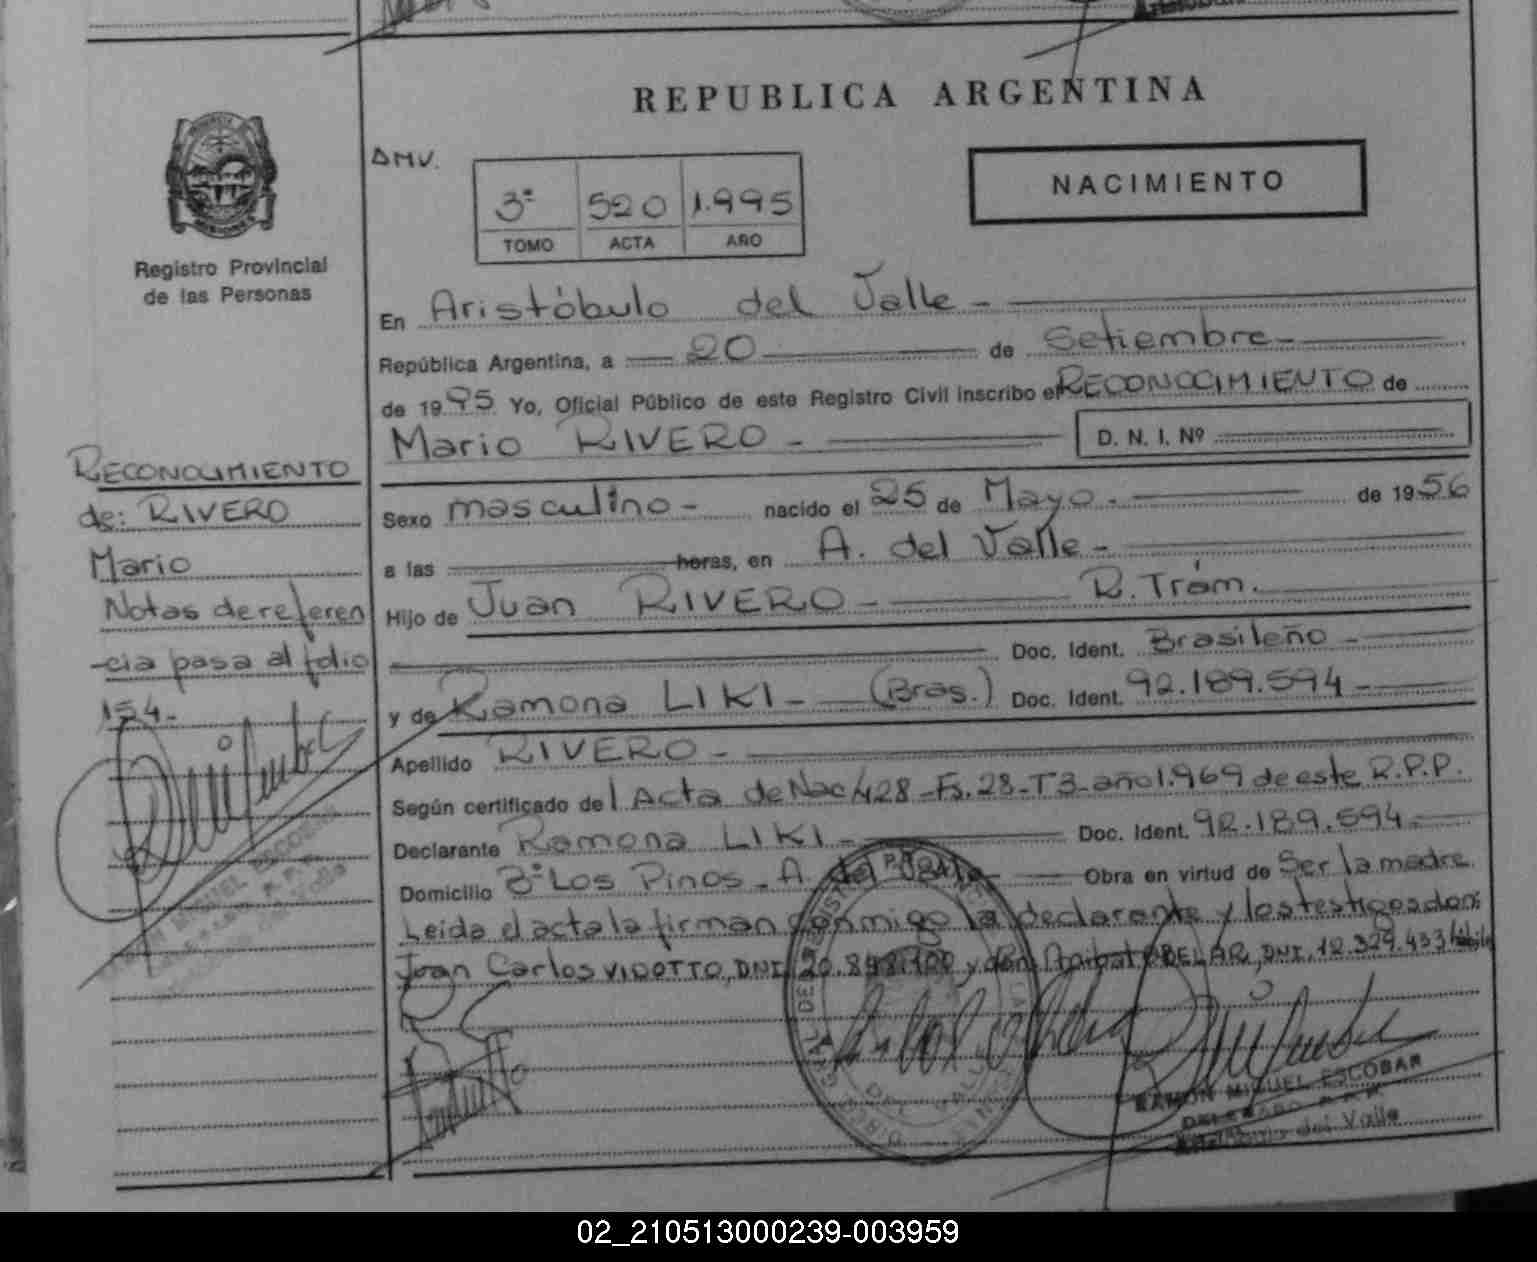 REPUBLICA ARGENTINA
DMV.
3º 520 1.995
TOMO ACTA AÑO
NACIMIENTO
Registro Provincial
de las Personas
En Aristóbulo del Valle -
República Argentina, a 20 de Setiembre -
de 1995 Yo, Oficial Público de este Registro Civil inscribo el RECONOCIMIENTO de
Mario RIVERO - D. N. I. Nº
Sexo masculino - nacido el 25 de Mayo - de 1956
a las horas, en A. del Valle -
Hijo de Juan RIVERO - R. Trám.
Doc. Ident. Brasileño -
y de Ramona LIKI - (Bras.) Doc. Ident. 92.189.594 -
Apellido RIVERO -
Según certificado del Acta de Nac 428 - Fs. 28 - T3 - año 1.969 de este R.P.P.
Declarante Ramona LIKI - Doc. Ident. 92.189.594 -
Domicilio Bº Los Pinos - A. del Valle - Obra en virtud de Ser la madre
Leida el acta la firman conmigo la declarante y los testigos don:
Juan Carlos VIDOTTO, DNI 20.848.100 y don Anibal OBELAR, DNI. 12.329.433
RECONOCIMIENTO
de: RIVERO
Mario
Notas de referen
-cia pasa al folio
154 -
RAMON MIGUEL ESCOBAR
DELEGADO R.P.P.
Aristobulo del Valle
02_210513000239-003959